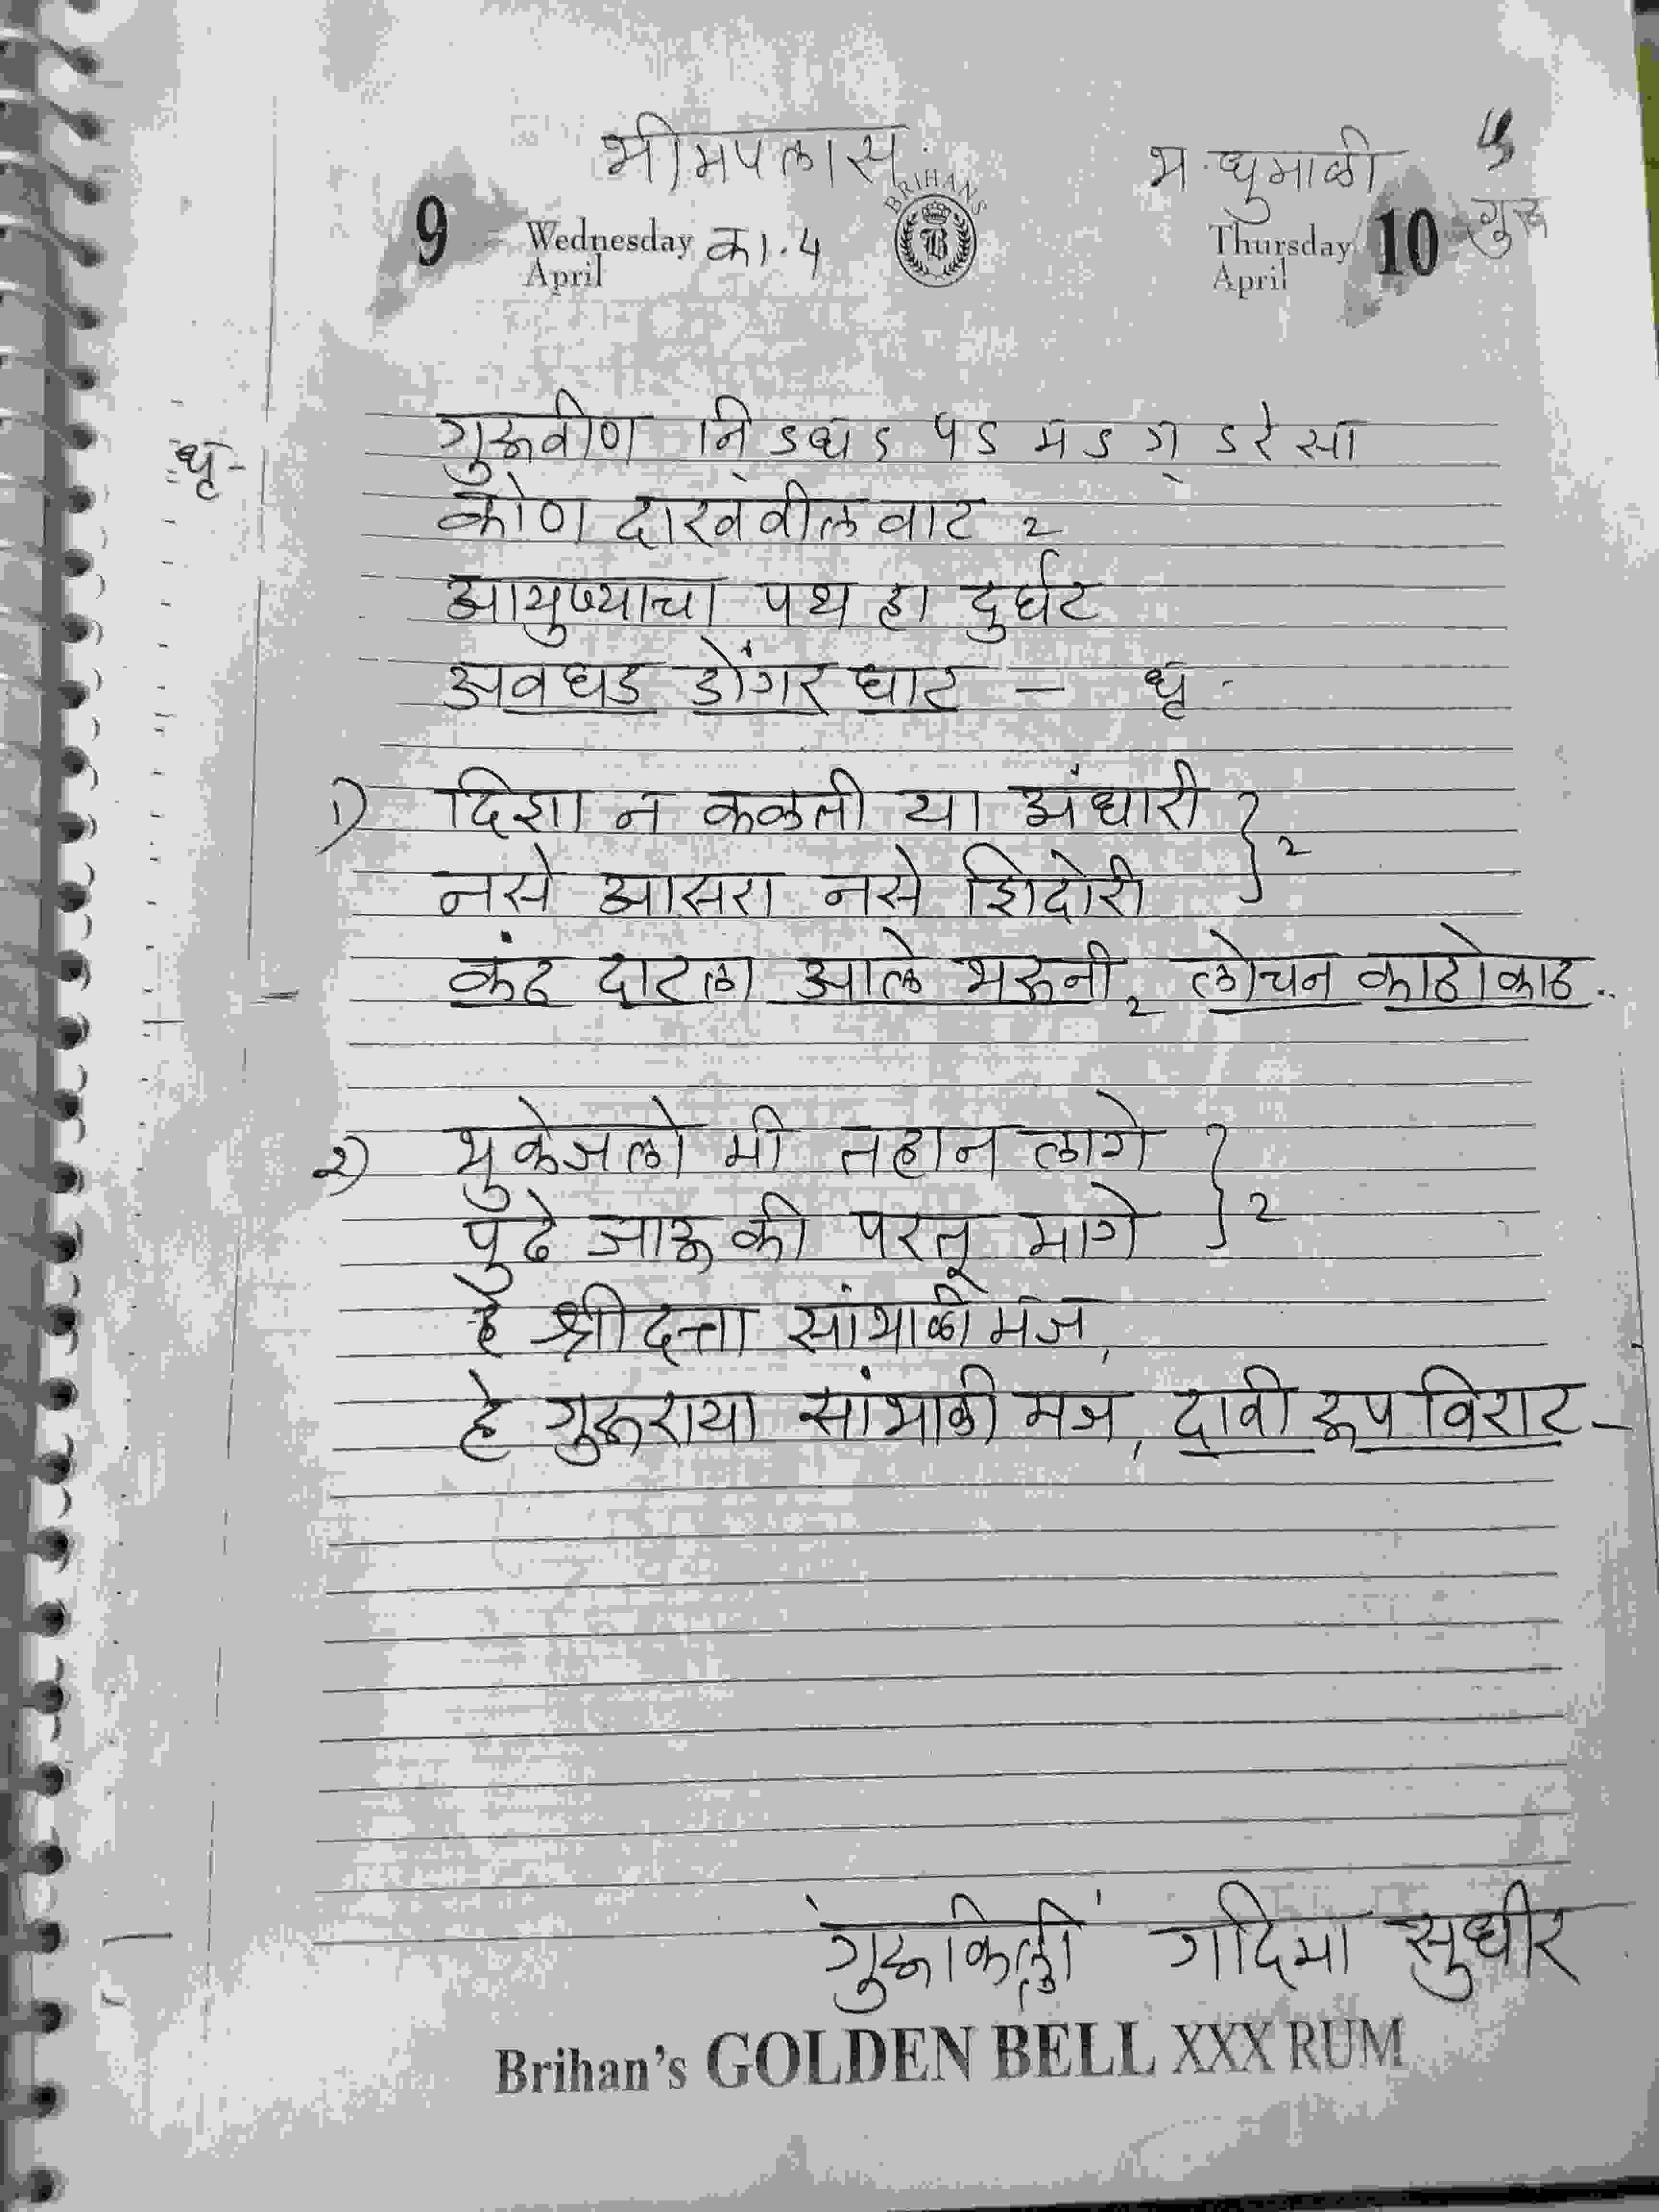 भीमपलास
भ. धुमाळी
5
गुरू
BRIHANS
9 Wednesday April का. 4
Thursday April 10
धृ- गुरूवीण नि ऽ ध ऽ प ऽ म ऽ ग ऽ रे सा
कोण दाखवील वाट 2
आयुष्याचा पथ हा दुर्घट
अवघड डोंगर घाट — धृ.
1) दिशा न कळती या अंधारी
नसे आसरा नसे शिदोरी } 2
कंठ दाटला आले भरूनी, 2 लोचन काठोकाठ..
2) भुकेजलो मी तहान लागे
पुढे जाऊ की परतू मागे } 2
हे श्रीदत्ता सांभाळी मज,
हे गुरूराया सांभाळी मज, दावी रूप विराट -
'गुरूकिल्ली' गदिमा सुधीर
Brihan's GOLDEN BELL XXX RUM